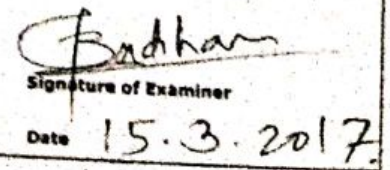 Signature of Examiner
Date 15.3.2017.